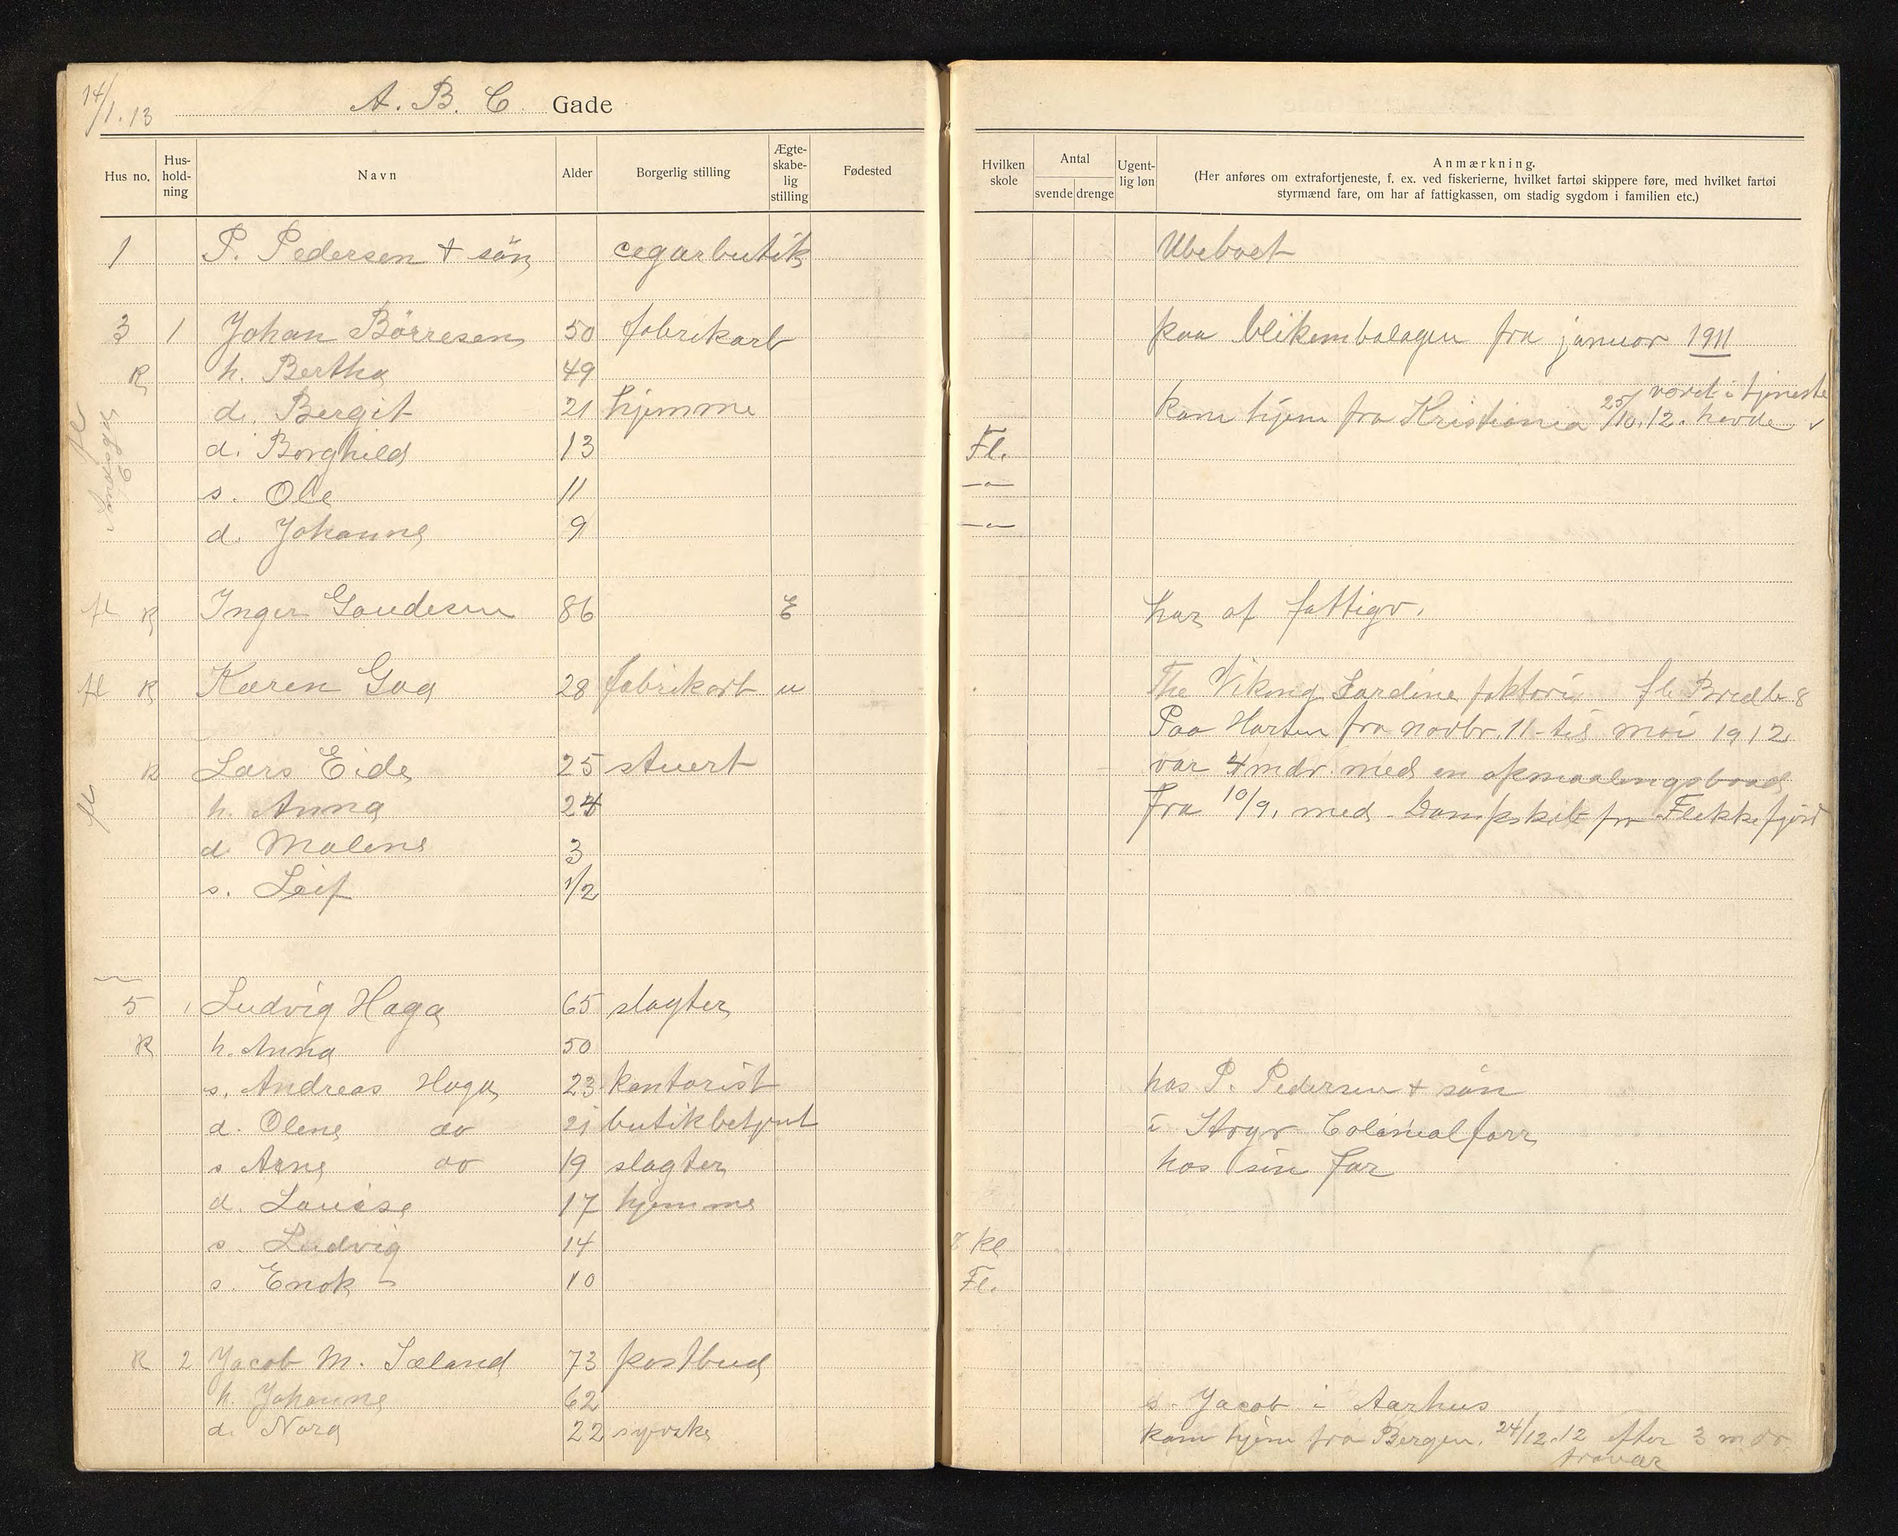 14/1.13
A. B. C. Gade
Hus no. Hus-hold-ning Navn Alder Borgerlig stilling Ægte-skabe-lig stilling Fødested
Hvilken skole Antal svende drenge Ugent-lig løn Anmærkning.
(Her anføres om extrafortjeneste, f. ex. ved fiskerierne, hvilket fartøi skippere føre, med hvilket fartøi
styrmænd fare, om har af fattigkassen, om stadig sygdom i familien etc.)
1 P. Pedersen + søn cegarbutik Ubeboet
3 1 Johan Børresen 50 fabrikarb paa blikembalagen fra januar 1911
R h. Bertha 49
fl d. Bergit 21 hjemme kom hjem fra Kristiania 25/10.12. havde været i tjeneste
d. Borghild 13 Fl.
s. Ole 11 —"—
d. Johanne 9 —"—
fl R Inger Gaudesen 86 E har af fattigv.
fl R Karen Goa 28 fabrikarb u The Viking Sardine faktori fl. Bredb 8
Paa Harten fra novbr. 11 - til mai 1912
R Lars Eide 25 stuert var 4 mdr med en opmaalingsbaad
fl h. Anna 24 fra 10/9. med Dampskib fra Flekkefjord
d Malene 3
s. Leif 1/2
5 1 Ludvig Haga 65 slagter
R h. Anna 50
s. Andreas Haga 23 kontorist hos P. Pedersen + søn
d. Olene do 21 butikbetjent i Colonialforr
s Arne do 19 slagter hos sin far
d. Louise 17 hjemme
s. Ludvig 14 8 kl
s. Enok 10 Fl.
R 2 Jacob M. Sæland 73 postbud
h. Johanne 62 s. Jacob i Aarhus
d. Nora 22 syerske kom hjem fra Bergen. 24/12.12 efter 3 mdr
fravær